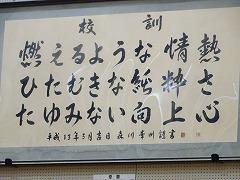 校訓
燃えるような情熱
ひたむきな純粋さ
たゆみない向上心
平成13年3月吉日 謹書